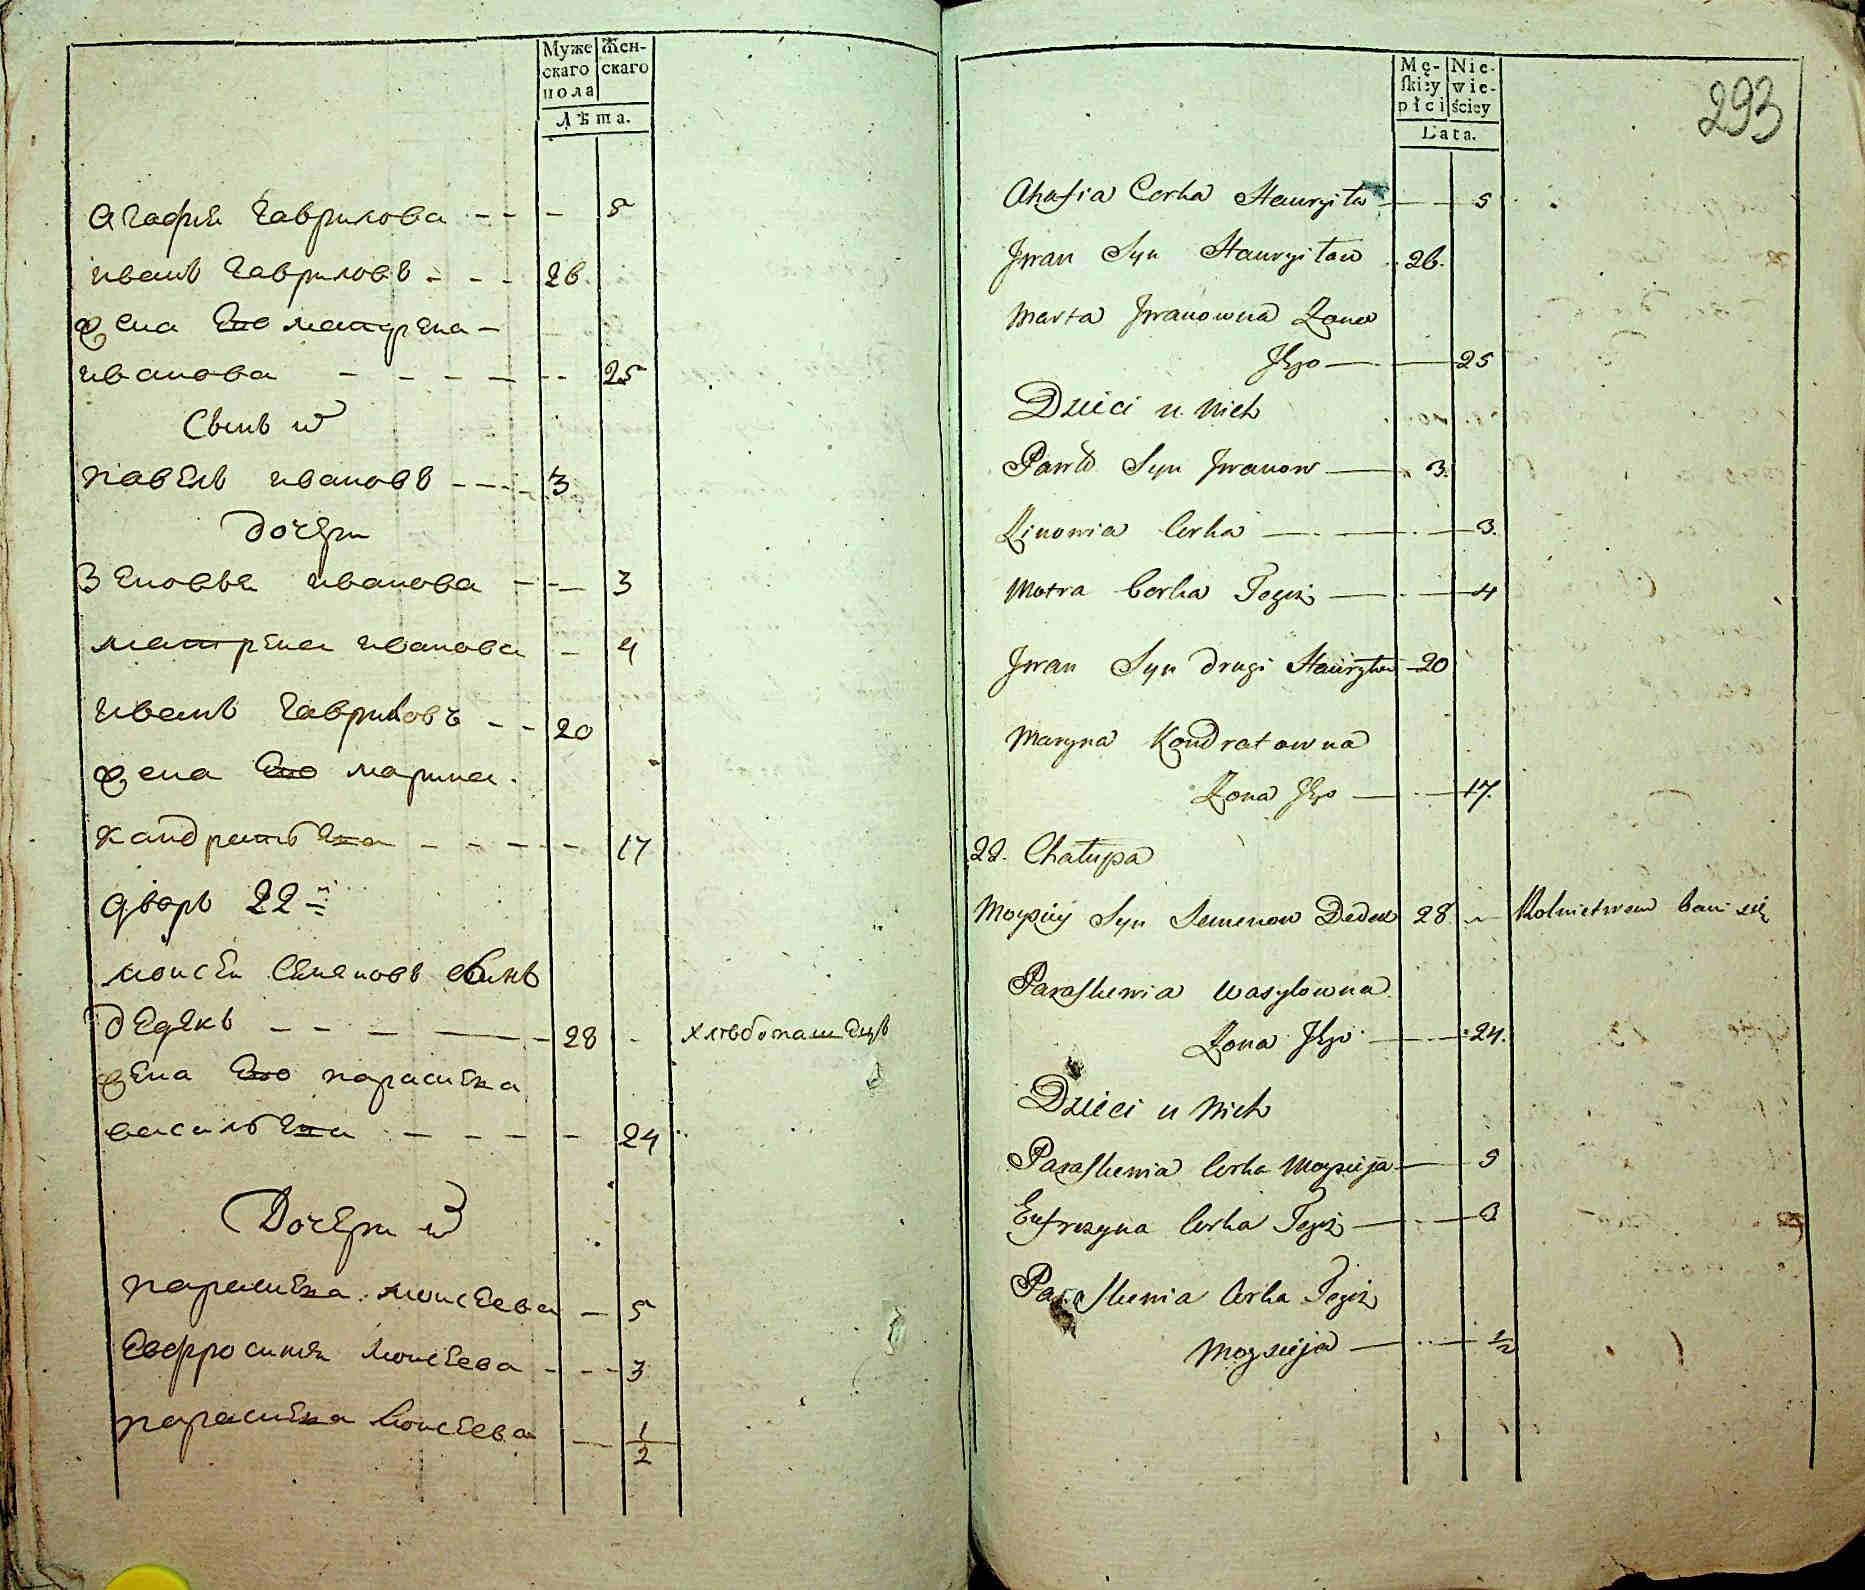 Муже
скаго
пола
Жен-
скаго
Лѣта.
Агафия Гаврилова - - - 5
иванъ Гавриловъ - - - 26.
жена Его матрена -
иванова - - - - - - - 25
Сынъ
павелъ ивановъ - - - - 3
дочери
Зеновья иванова - - - 3
матрена иванова - 4
иванъ Гавриловъ - - 20
жена Его марина.
кандратьева - - - - - 17
дворъ 22 й
моисей Семеновъ сынъ
дедекъ - - - - - 28 - хлѣбопашецъ
жена Его параска
васильева - - - - - 24
Дочери
параска моисеева - 5
Евфросиния моисеева - - - 3
параска моисеева - 1/2
293
Mę-
skiey
płci
Nie-
wie-
ściey
Lata.
Ahafia Corka Hauryiła - - 5
Jwan Syn Hauryiłow 26.
Marta Jwanowna Zona
Jego - - 25
Dzieci u Nich
Paweł Syn Jwanow - 3.
Zinowia Corka - - - 3.
Motra Corka Tegiż - - 4
Jwan Syn drugi Hauryiłow 20
Maryna Kondratowna
Zona Jego - - 17.
22. Chałupa
Moysiey Syn Semenow Dedek 28 - Rolnictwem bawi się
Paraskewia Wasylowna
Zona Jego - - 24.
Dzieci u Nich
Paraskewia Corka Moysieja - 5
Eufrozyna Corka Tegiż - - 3
Paraskewia Corka Tegiż
Moysieja - - 1/2